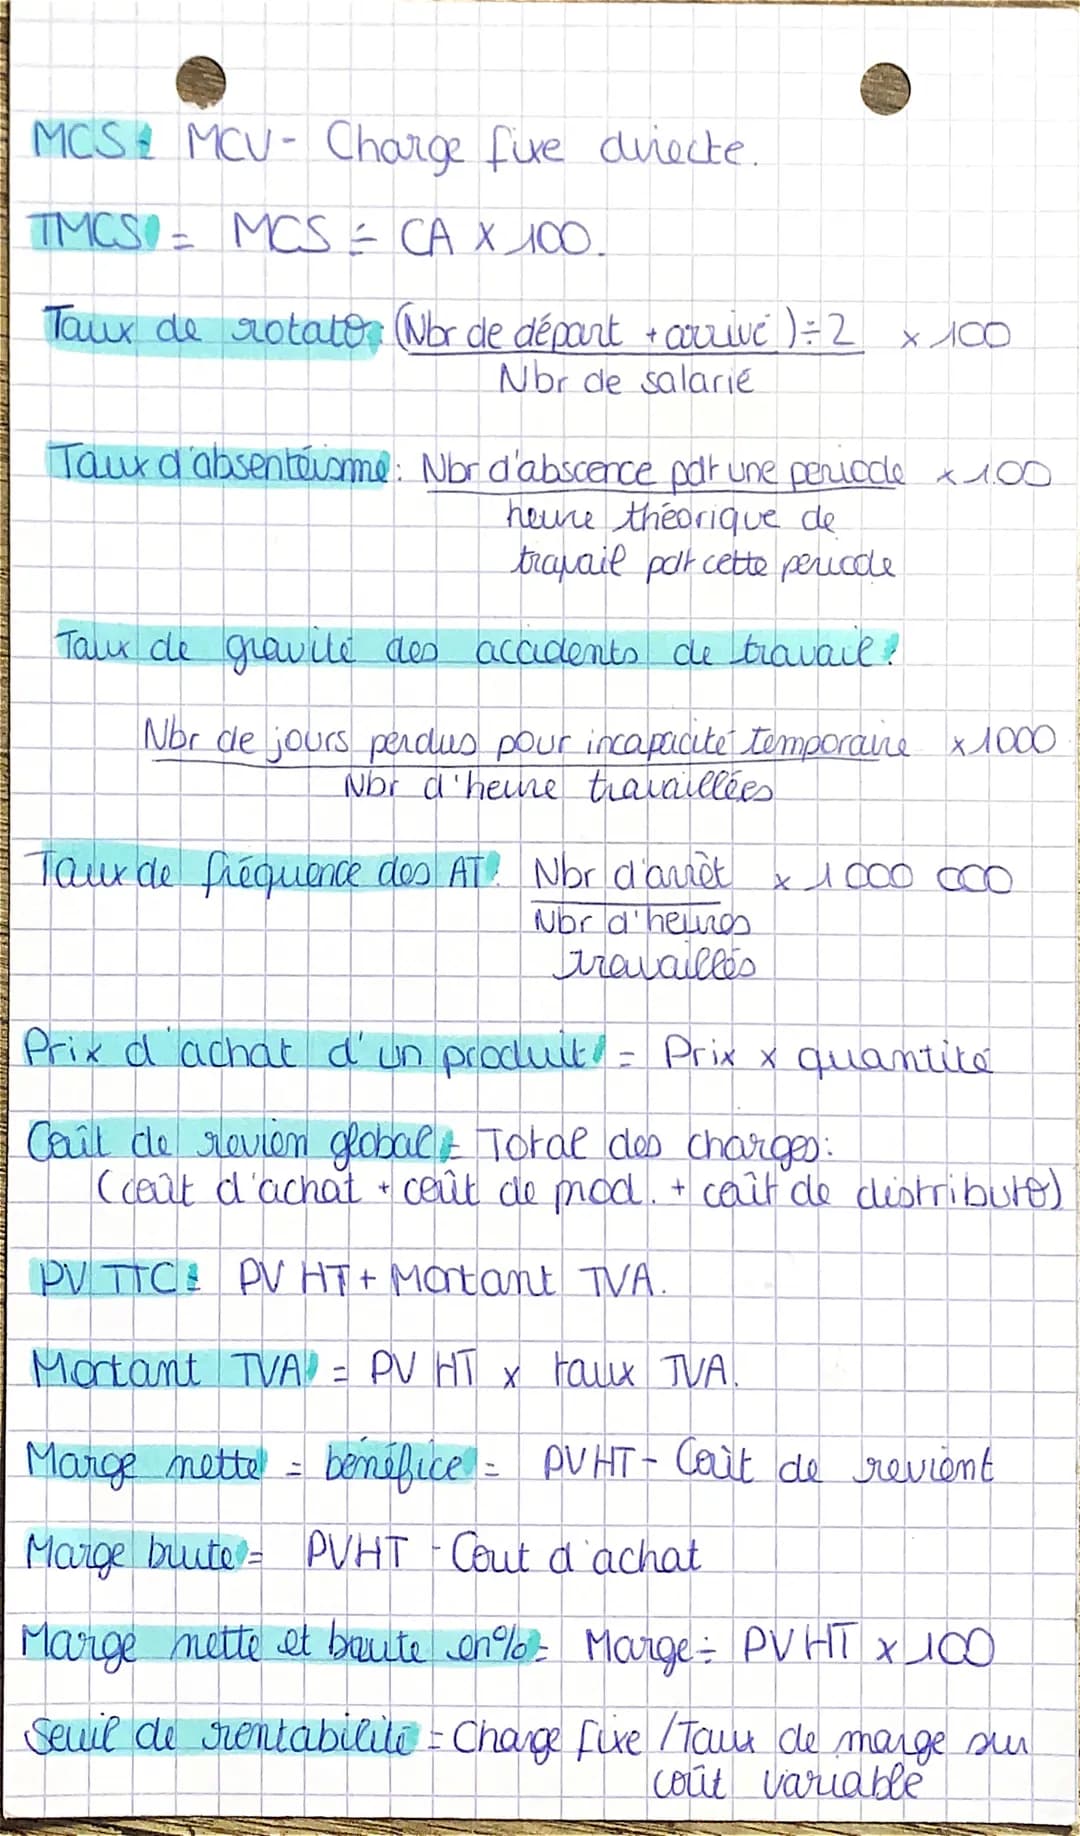 MCS : MCV - Charge fixe directe.
TMCS = MCS ÷ CA x 100.
Taux de rotato : (Nbr de départ + arrivé) ÷ 2 x 100
Nbr de salarié
Taux d'absentéisme : Nbr d'abscence par une periode x 100
heure théorique de
travail par cette periode
Taux de gravité des accidents de travail :
Nbr de jours perdus pour incapacité temporaire x 1000
Nbr d'heure travaillées
Taux de fréquence des AT : Nbr d'arrêt x 1 000 000
Nbr d'heures
travaillés
Prix d'achat d'un produit = Prix x quantité
Coût de revien global = Total des charges :
(coût d'achat + coût de prod. + coût de distributo)
PV TTC : PV HT + Montant TVA.
Montant TVA = PV HT x taux TVA.
Marge nette = bénéfice = PVHT - Coût de revient
Marge brute = PVHT - Cout d'achat
Marge nette et braute en % = Marge ÷ PVHT x 100
Seuil de rentabilité = Charge fixe / Taux de marge sur
coût variable